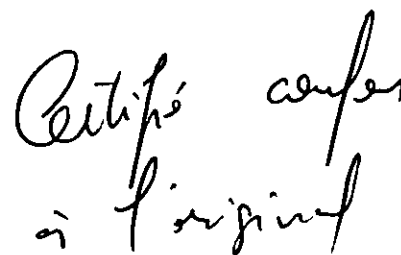 Certifié confor
à l'original